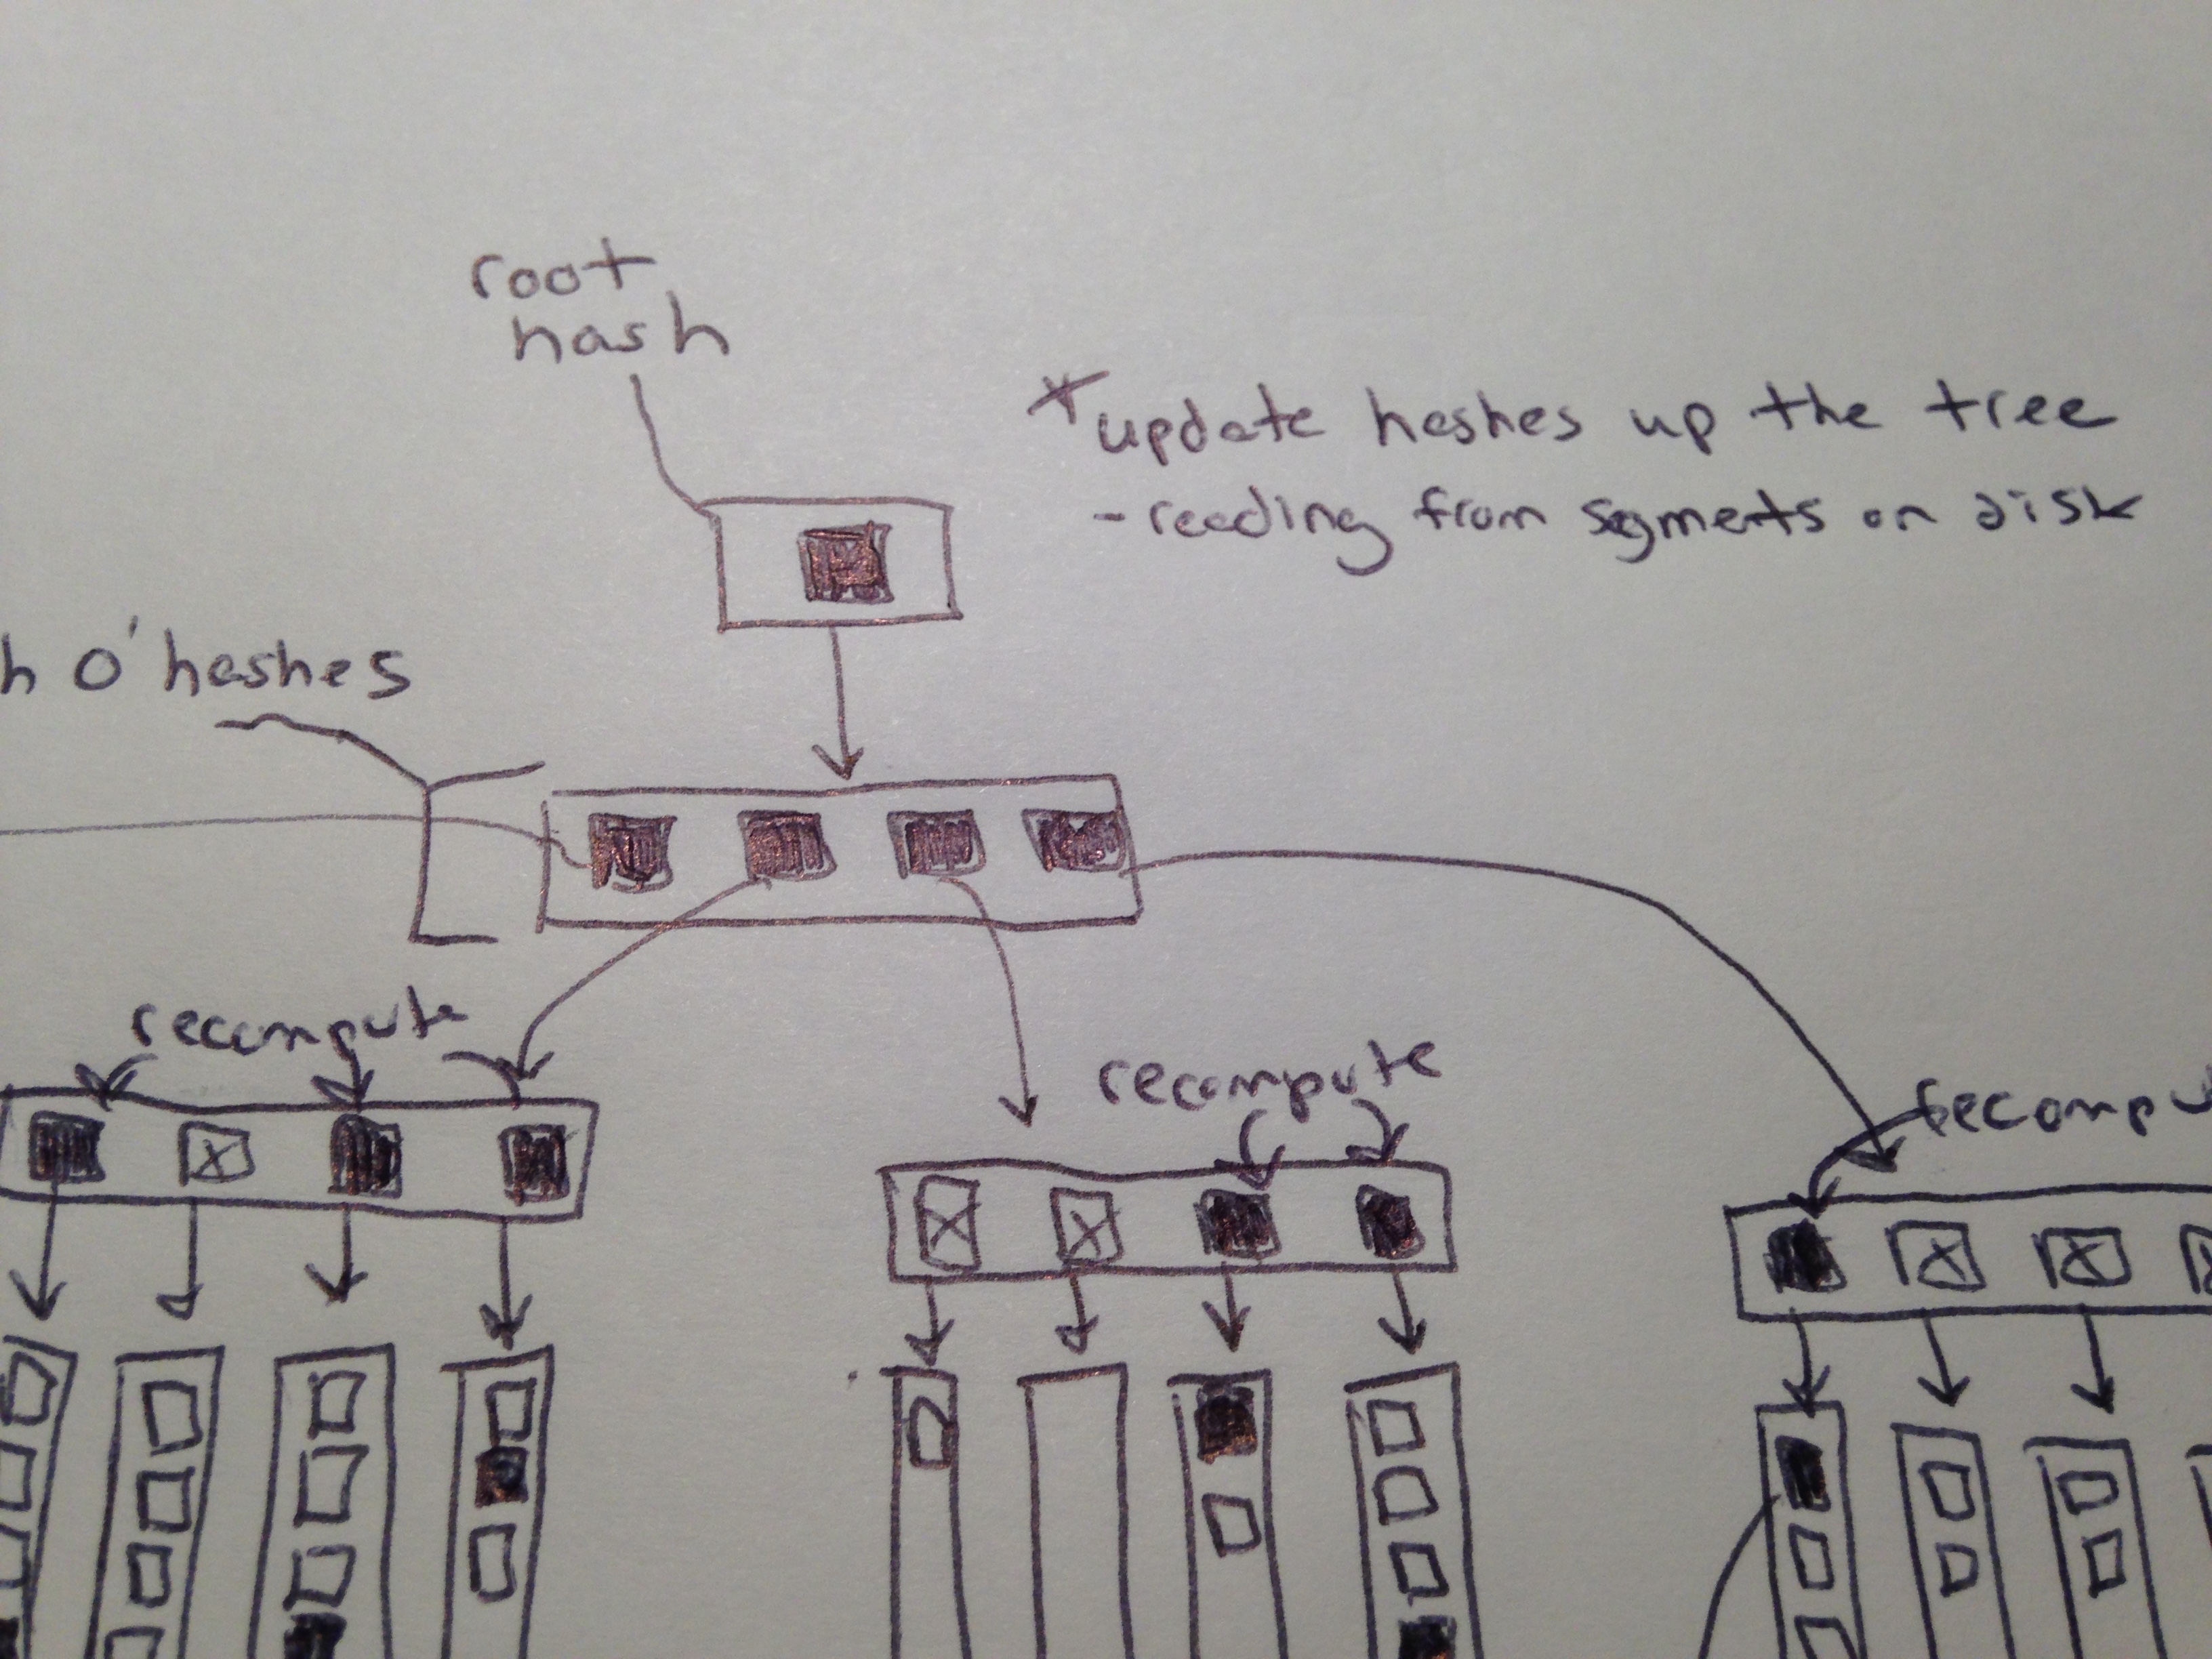 root
hash
*update hashes up the tree
-reading from segments on disk
h o'hashes
recompute
recompute
recompu